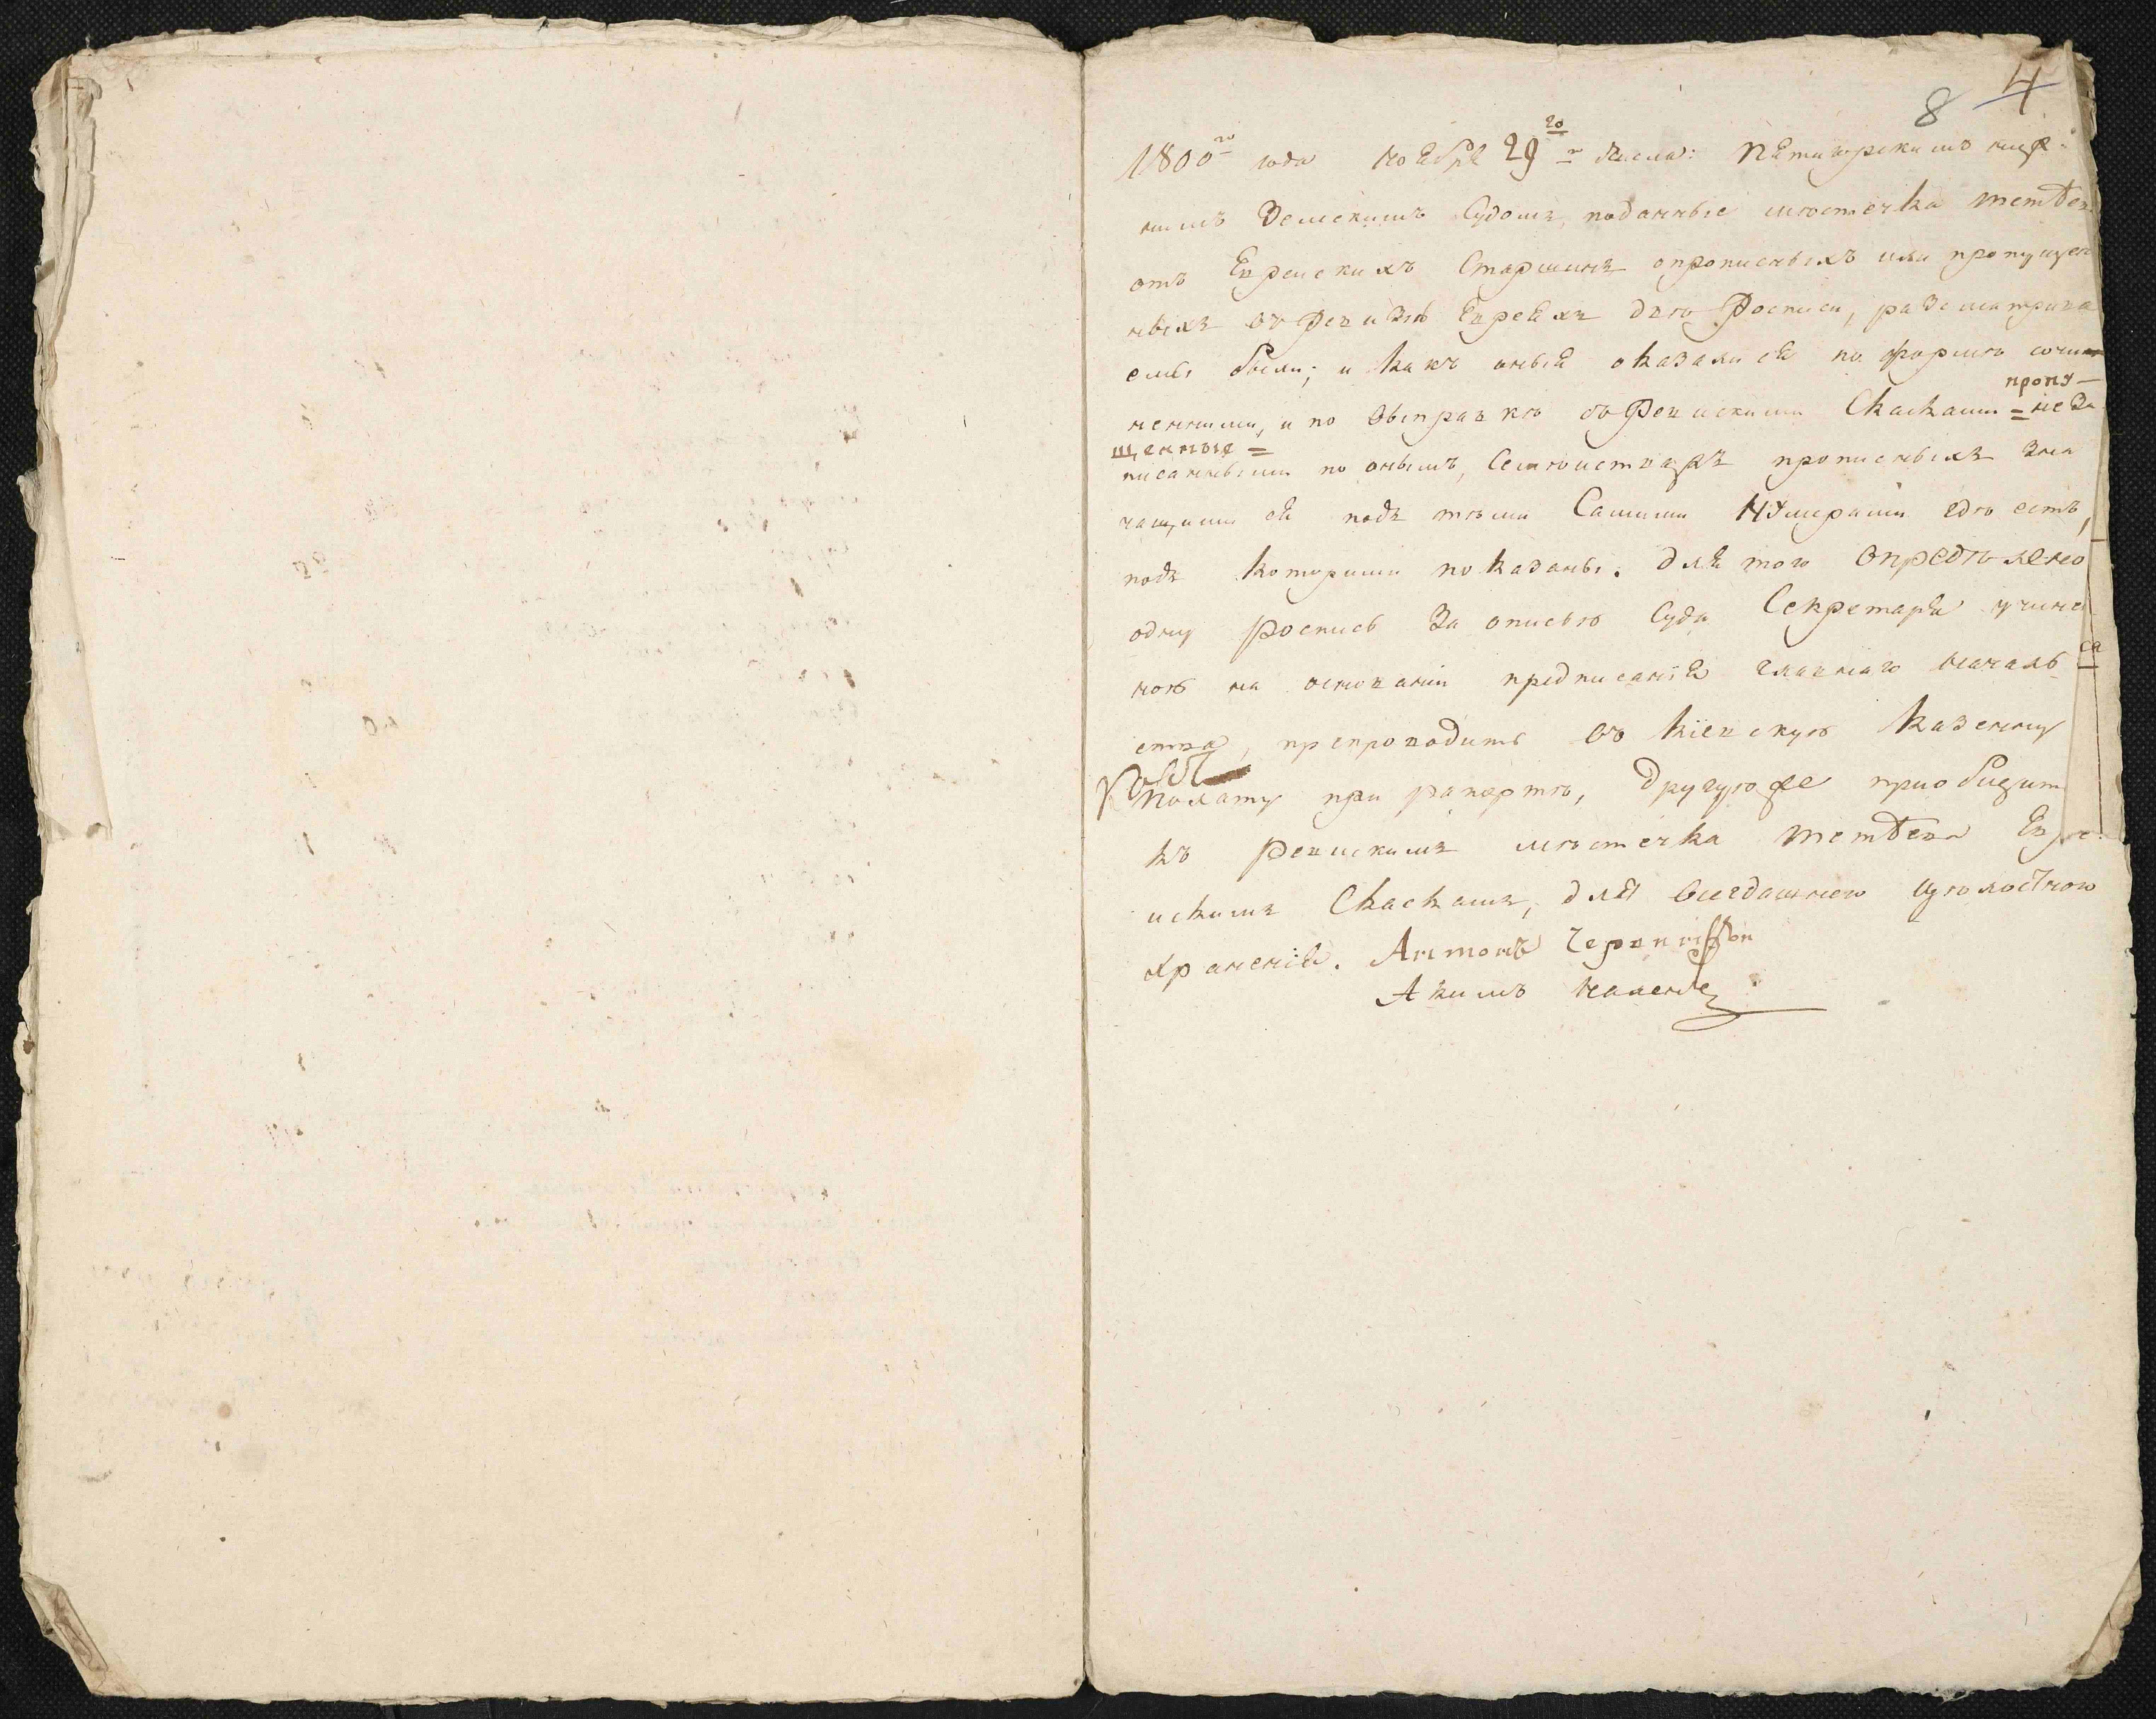 8 4
1800го года ноября 29го числа: Пятигорскимъ ниж-
нимъ Земскимъ Судомъ, поданные местечка тетѣев
отъ Еврейскихъ Старшинъ опрописныхъ или пропущен
ныхъ въ Ревизіѣ Евреяхъ двѣ Росписи, разсматрива
емы были; и какъ оныя оказались по формѣ сочи
ненными, и по выправкѣ съ Ревискими Сказками = неза
пропу-
щенные =
писанными по онымъ, Семѣйствахъ прописныхъ зна
чащимися подъ тѣми Самыми Нумерами гдѣ есть,
подъ которими показаны. Для того опредѣлено
одну роспись за описью Суда Секретаря учине
ною на основаніи предписанія главнаго началь
ства, препроводить въ кіевскую казенну
полату при рапортѣ, другуюже приобщить
къ ревискимъ мѣстечка тетѣева Евре
искимъ Сказкамъ, для всегдашнего цѣлостного
храненія. Антонъ
Акимъ